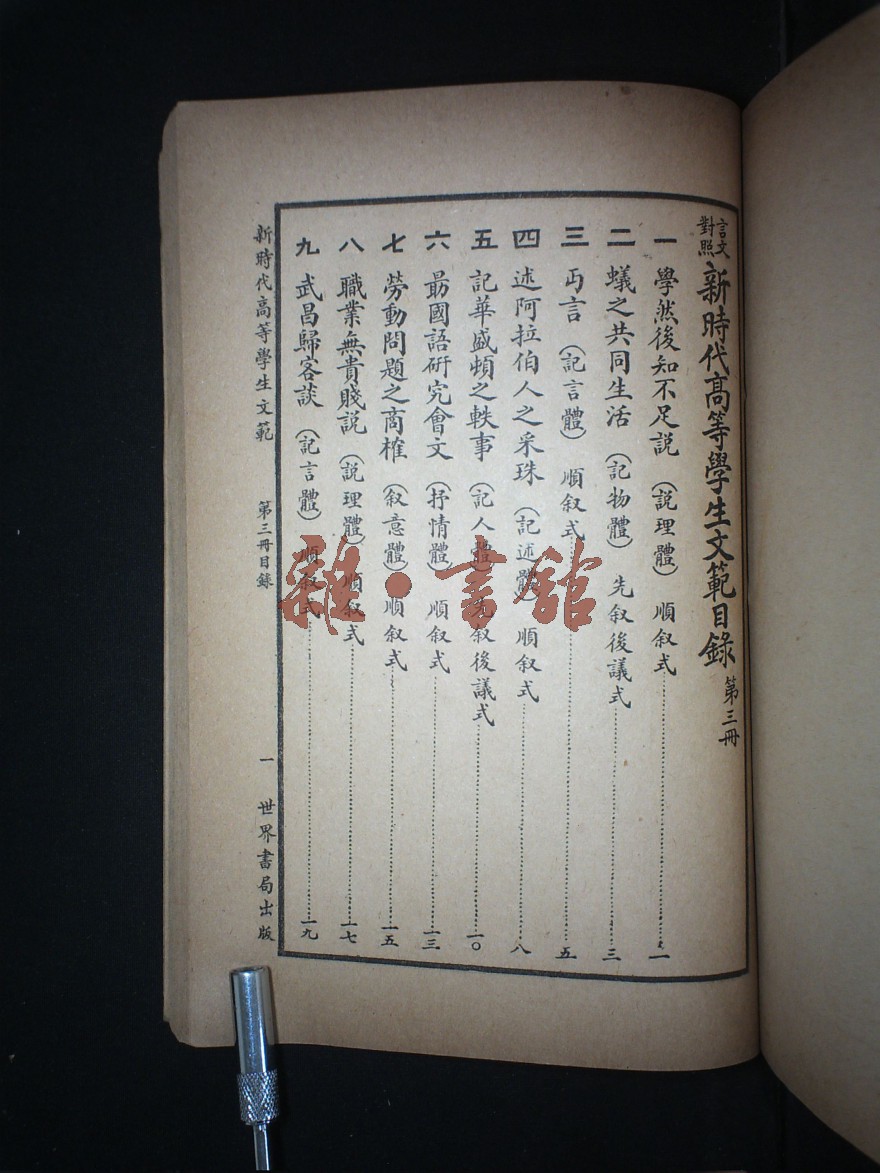 言文對照 新時代高等學生文範目錄 第三冊
一 學然後知不足説 （説理體） 順叙式 一
二 蟻之共同生活 （記物體） 先叙後議式 三
三 丐言 （記言體） 順叙式 五
四 述阿拉伯人之采珠 （記述體） 順叙式 八
五 記華盛頓之軼事 （記人體） 先叙後議式 一〇
六 勗國語研究會文 （抒情體） 順叙式 一三
七 勞動問題之商榷 （叙意體） 順叙式 一五
八 職業無貴賤説 （説理體） 順叙式 一七
九 武昌歸客談 （記言體） 順叙式 一九
新時代高等學生文範 第三冊目錄 一 世界書局出版
雜·書館